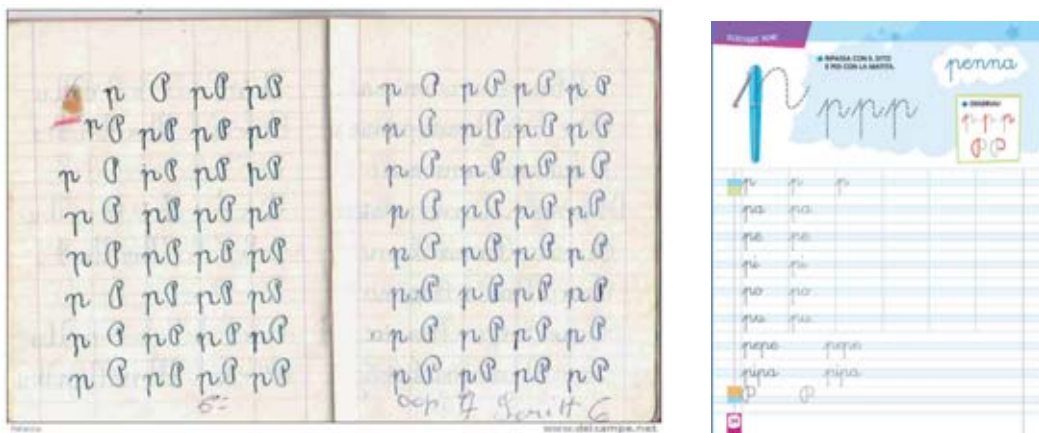 p P pP pP
pP pP pP pP
p P pP pP pP
p P pP pP pP
p P pP pP pP
p P pP pP pP
p P pP pP pP
p P pP pP pP
6=
p P pP pP p P
p P pP pP p P
p P pP pP p P
p P pP pP pP
p P pP pP p P
p P pP pP pP
p P pP pP p P
p P pP pP p P
6
www.delcampe.net
RIPASSA CON IL DITO
E POI CON LA MATITA.
penna
p
p p p
OSSERVA!
p p p
P P
p p p
pa pa
pe pe
pi pi
po po
pu pu
pepe pepe
pipa pipa
P P